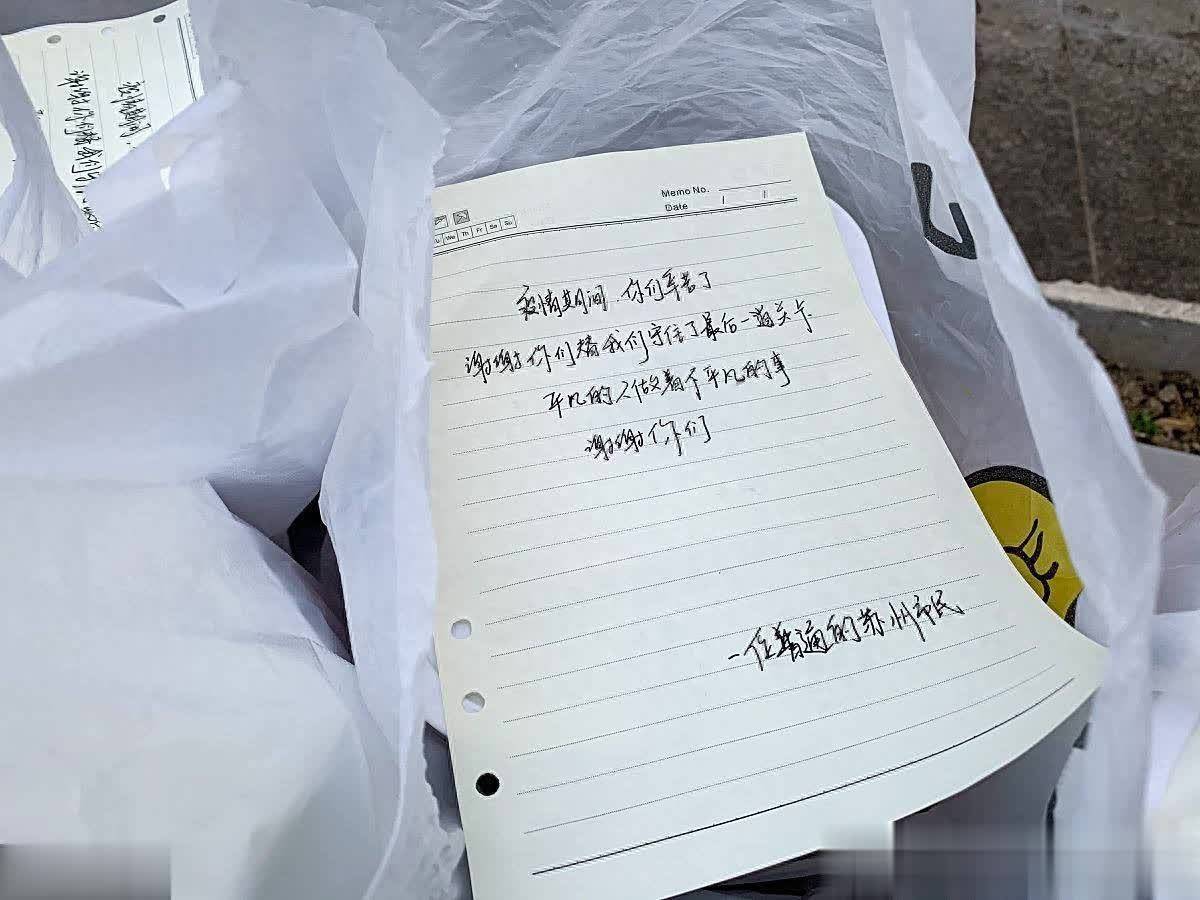 谢谢你们替我们守
疫情期间
Memo No.
Date / /
Tu We Th Fr Sa Su
疫情期间,你们辛苦了
谢谢你们替我们守住了最后一道关卡
平凡的人做着不平凡的事
谢谢你们
一位普通的苏州市民